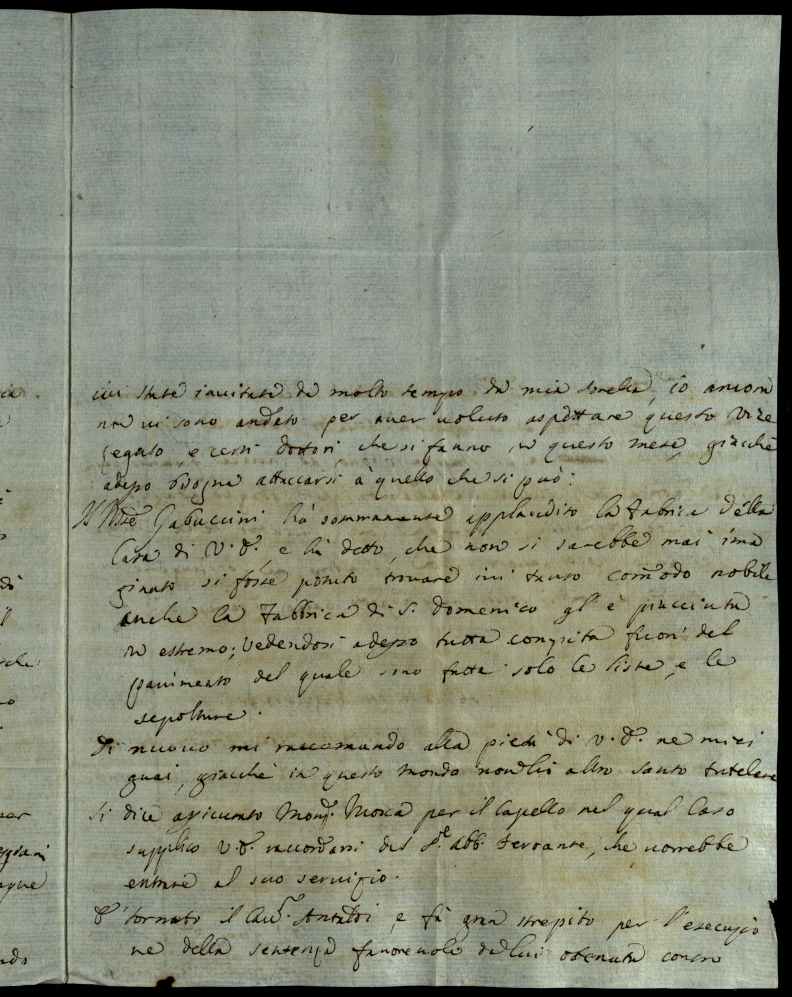 ivi state invitate da molto tempo da mia sorella, io ancora
non vi sono andato per aver voluto aspettare questo Vice
legato, e certi dottori, che si fanno in questo mese, giacchè
adesso bisogna attaccarsi à quello che si può:
Gabuccini hà sommamente applaudito la Fabrica della
Casa di V. E., e hà detto, che non si sarebbe mai ima
ginato si fosse potuto trovare ivi tanto comodo nobile
anche la Fabbrica di S. Domenico gl'è piacciuta
in estremo; vedendosi adesso tutta compita fuori del
pavimento del quale sono fatte solo le liste, e le
sepolture.
Di nuovo mi raccomando alla pietà di V. E. ne miei
guai, giacchè in questo mondo non hò altro santo tutelare
Si dice apicunto Mons. Mosca per il Capello nel qual Caso
supplico V. E. raccordarsi del Sr. Abb. Ferrante, che vorrebbe
entrare al suo servizio.
È tornato il Cav. Antaldi, e fà gran strepito per l'esecuzio
ne della sentenza favorevole da lui ottenuta contro
ndo